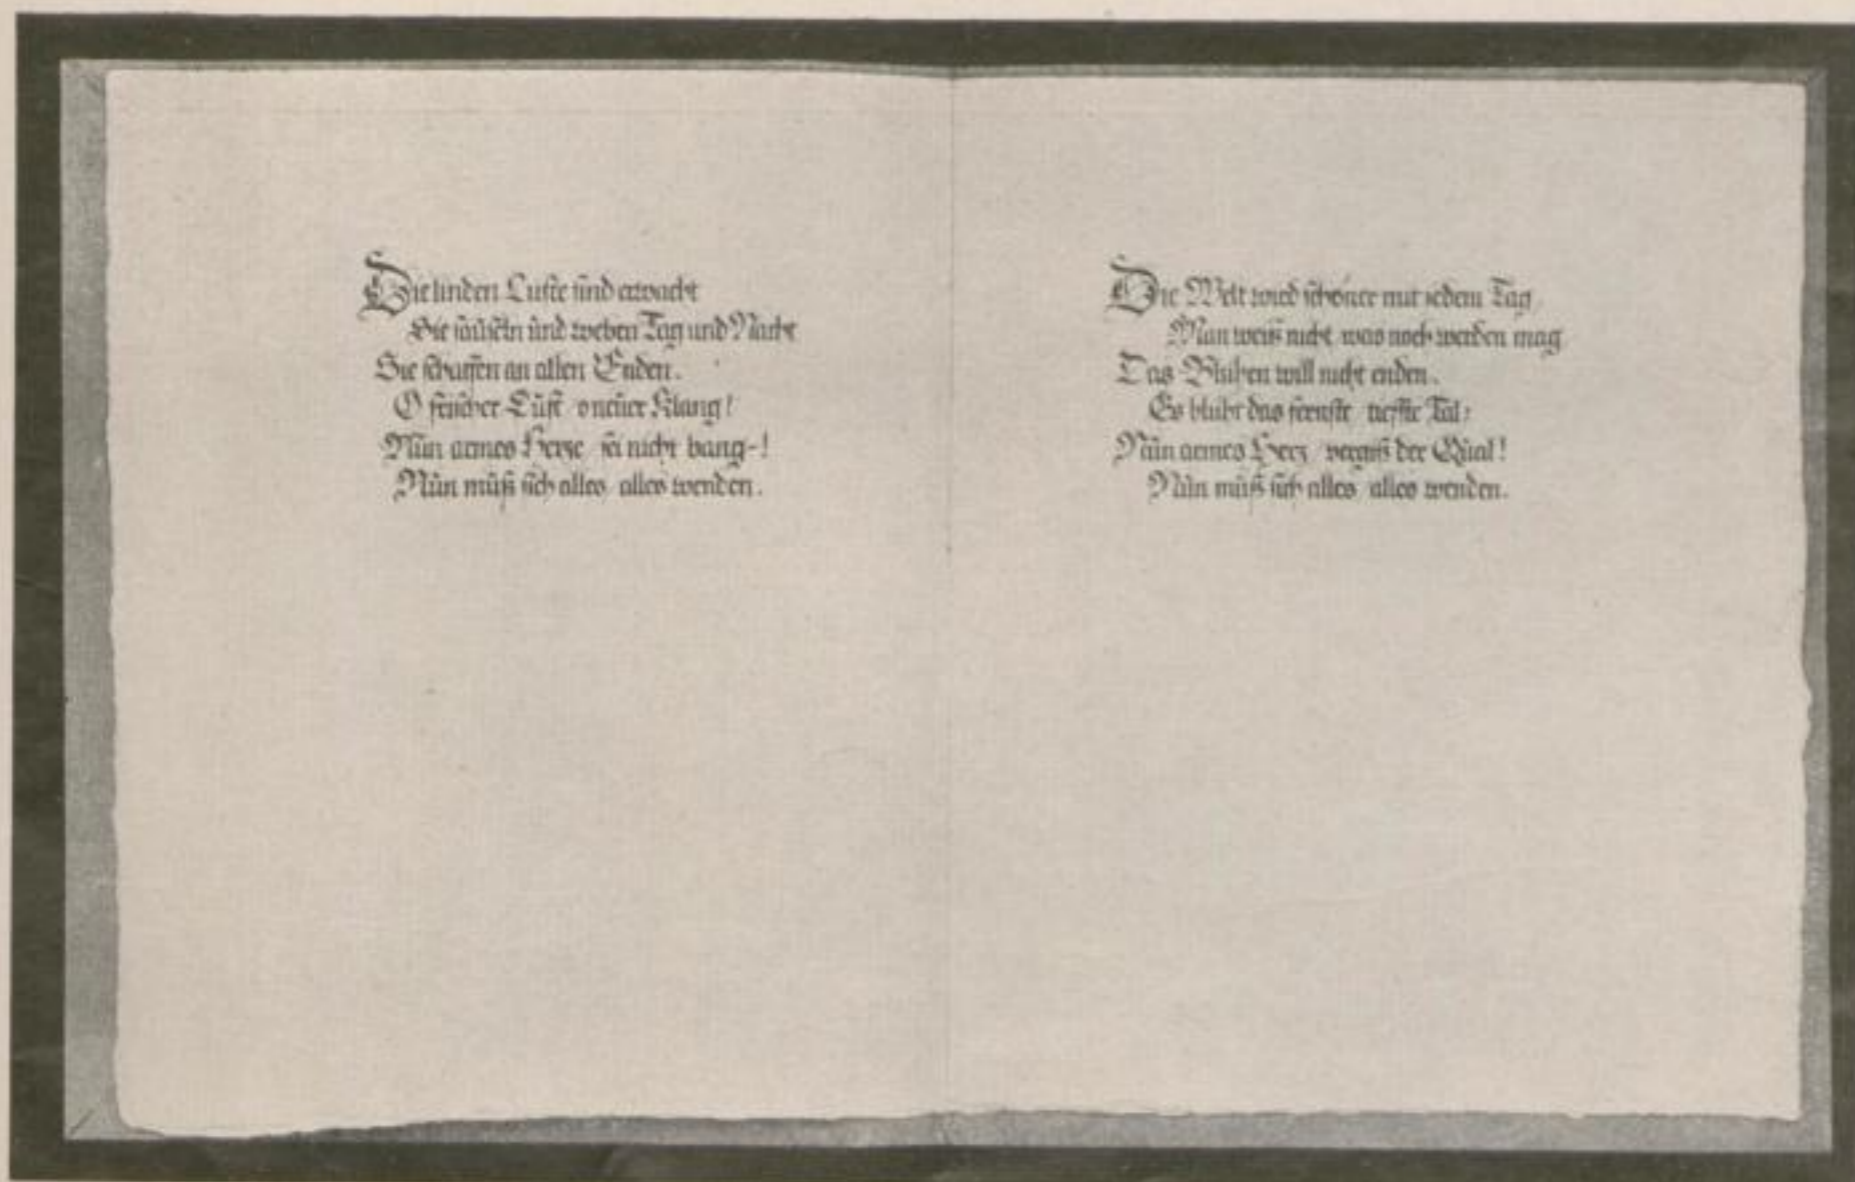 Die linden Lüfte sind erwacht
Sie säuseln und weben Tag und Nacht
Sie schaffen an allen Enden.
O frischer Duft o neuer Klang!
Nun armes Herze sei nicht bang-!
Nun muß sich alles alles wenden.
Die Welt wird schöner mit jedem Tag
Man weiß nicht was noch werden mag
Das Blühen will nicht enden.
Es blüht das fernste tiefste Tal:
Nun armes Herz vergiß der Qual!
Nun muß sich alles alles wenden.